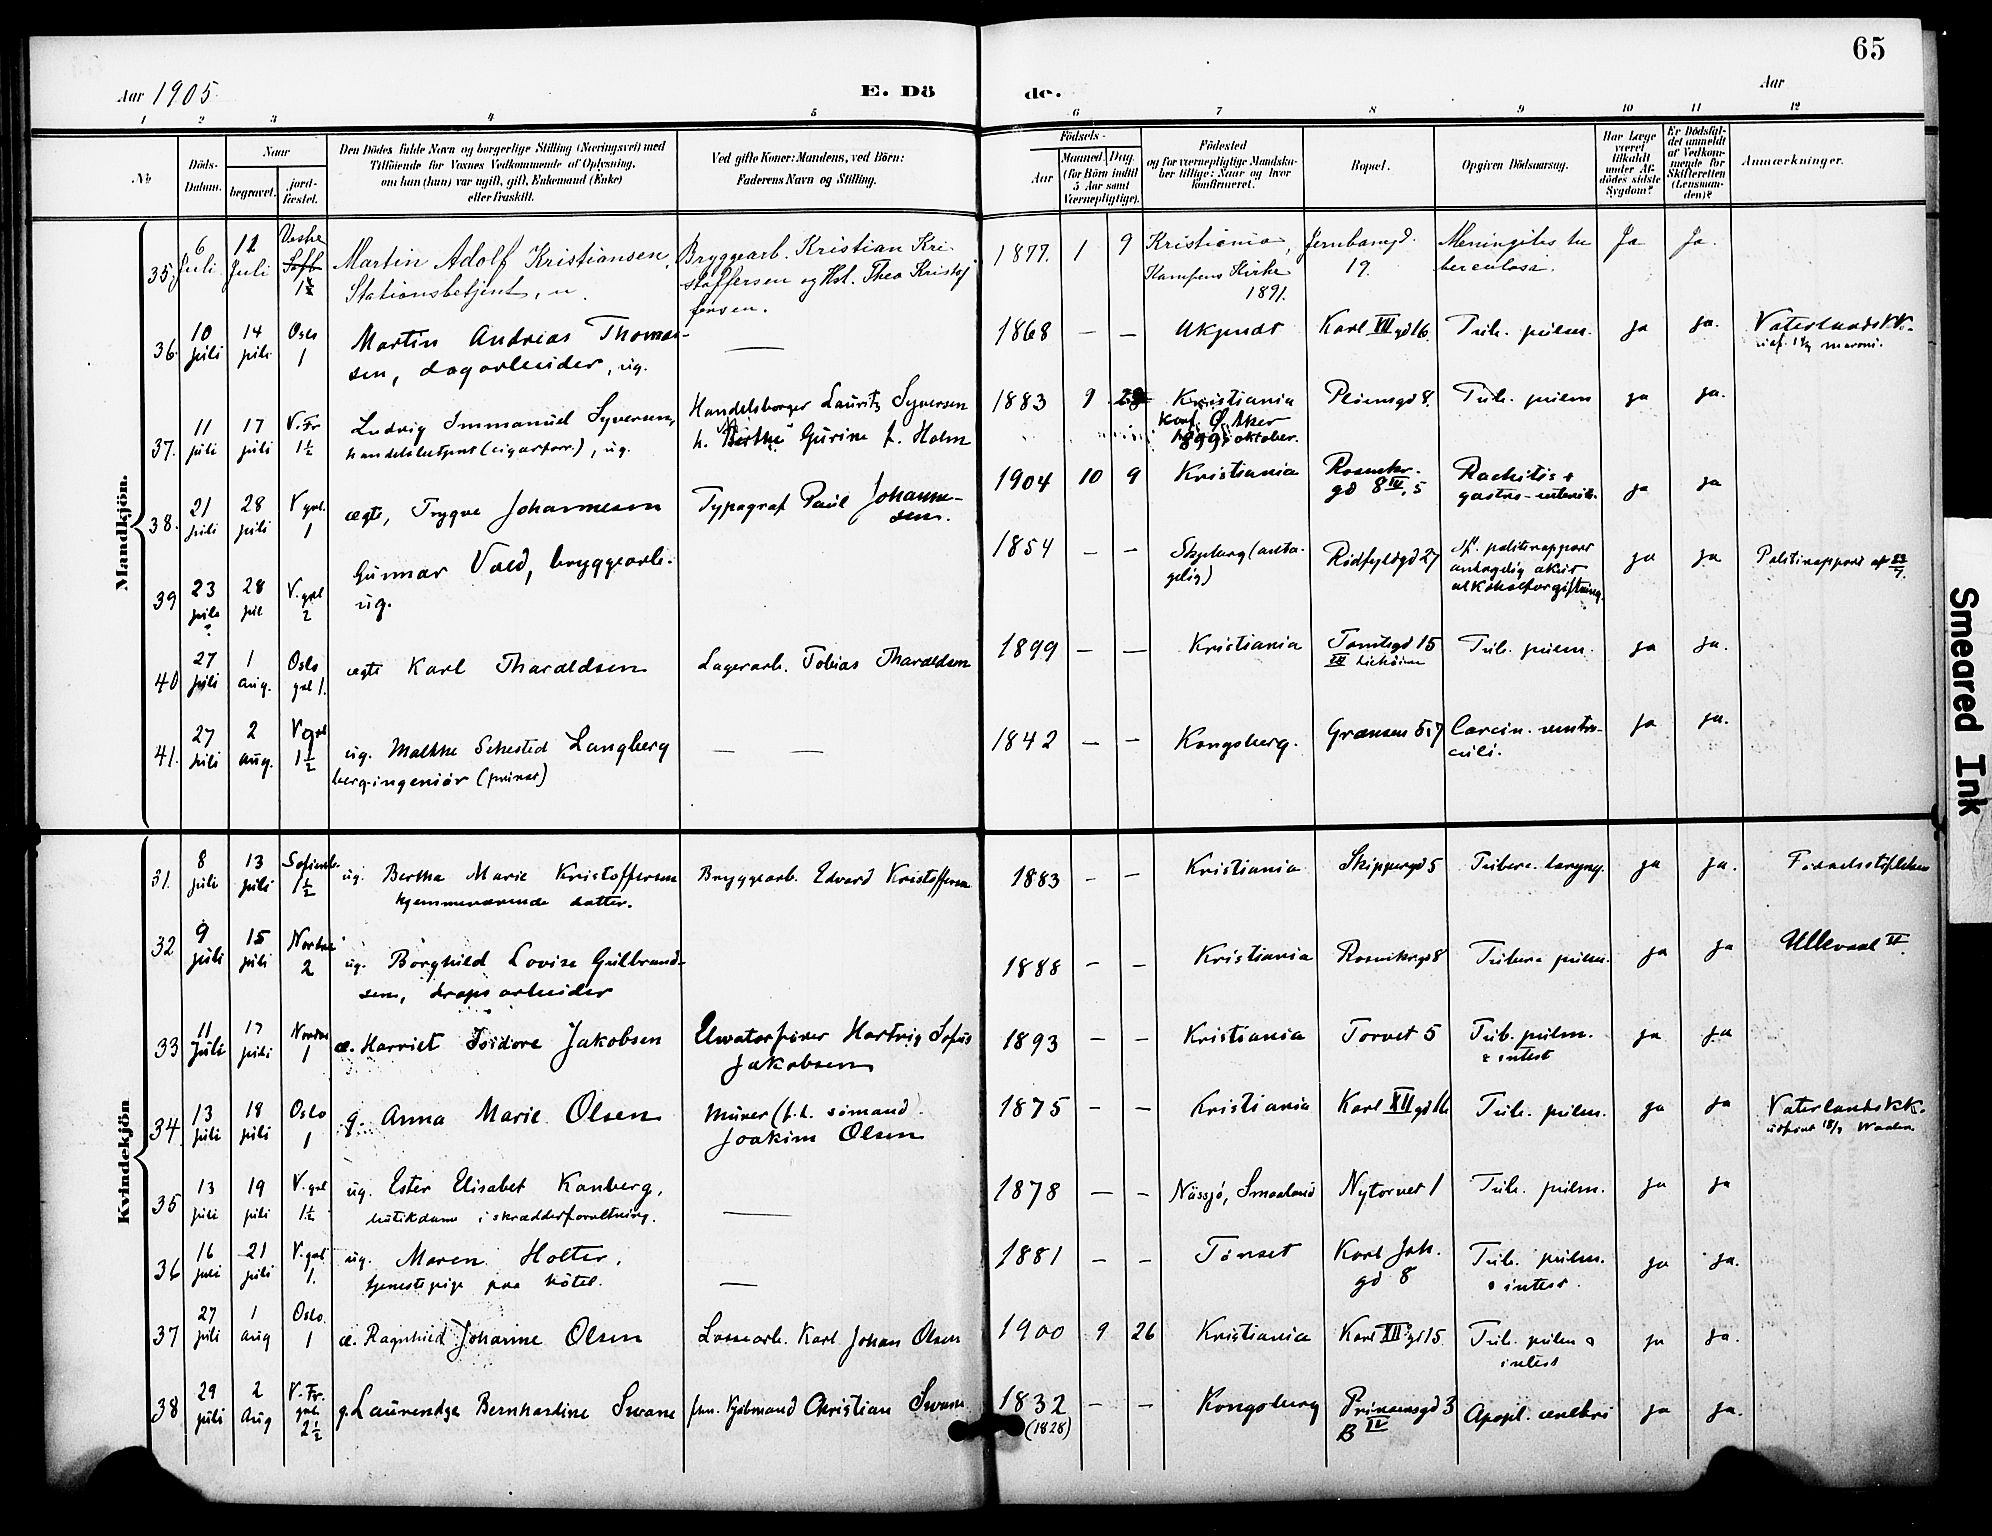 65
Aar 1905
E. Dö
de.
Aar
1 2 3 4 5 6 7 8 9 10 11 12
No
Döds-
Datum.
Naar
begravet.
jord-
fæstet.
Den Dödes fulde Navn og borgerlige Stilling (Næringsvei) med
Tilföiende for Voxnes Vedkommende af Oplysning,
om han (hun) var ugift, gift, Enkemand (Enke)
eller fraskilt.
Ved gifte Koner: Mandens, ved Börn:
Faderens Navn og Stilling.
Födsels-
Aar
Maaned Dag
(for Börn indtil
5 Aar samt
Værnepligtige).
Födested
og for værnepligtige Mandska-
ber tillige: Naar og hvor
konfirmeret.
Bopæl.
Opgiven Dödsaarsag.
Har Læge
været
tilkaldt
under Af-
dödes sidste
Sygdom?
Er Dödsfal-
det anmeldt
af Vedkom-
mende for
Skifteretten
(Lensman-
den)?
Anmærkninger.
Mandkjön.
35. 6 Juli 12 Juli Vestre 1½
Martin Adolf Kristiansen,
Stationsbetjent, u.
Bryggearb. Kristian Kri-
stoffersen og Hst. Thea Kristof
fersen.
1877. 1 9
Kristiania,
Kampens Kirke
1891.
Jernbanegd.
19.
Meningitis tu
berculosa.
Ja Ja.
36. 10 juli 14 juli Oslo 1
Martin Andreas Thomas-
sen, dagarbeider, ug.
1868 — —
Ukjendt
Karl XII gd 16.
Tub. pulm.
ja ja.
Vaterlands KK.
37. 11 juli 17 juli V. Fr 1½
Ludvig Immanuel Syversen,
handelsbetjent (cigarforr.), ug.
Handelsborger Lauritz Syversen
h. Berthe Gurine f. Holm
1883 9
Kristiania
Konf. Ø. Aker
1899, oktober.
Pløensgd 8.
Tub. pulm
ja ja.
38. 21 juli 28 juli V grl. 1
ægte, Trygve Johannesen
Typograf Paul Johanne-
sen.
1904 10 9
Kristiania
Rosenkr.
gd 8 IV, 5
Rachitis &
gastro-enterit.
ja ja
39 23 juli ? 28 jul V. grl 2
Gunnar Vold, bryggearb.
ug.
1854 — —
Skjeberg (anta-
gelig)
Rødfyldgd 27
flg. politirapport
antagelig akut
alkoholforgiftning.
ja ja
Politirapport af 23/7.
40 27 juli 1 aug. Oslo grl 1.
ægte Karl Tharaldsen
Lagerarb. Tobias Tharaldsen
1899 — —
Kristiania
Tomtegd 15
Tub. pulm.
ja ja.
41. 27 juli 2 aug. V grl 1½
ug. Malthe Sehested Langberg
berg-ingeniør (privat)
— —
1842 — —
Kongsberg.
Grænsen 5, 7
Carcin. ventri-
culi.
ja ja.
Kvindekjön
31. 8 juli 13 juli Sofienb. 1½
ug. Bertha Marie Kristoffersen
hjemmeværende datter.
Bryggearb. Edvard Kristoffersen
1883 — —
Kristiania
Skippergd 5
Tuberc. laryng.
ja ja.
Fødselsstiftelsen
32 9 juli 15 juli Nordre 2
ug. Borghild Lovise Gulbrand-
sen, drops arbeider
1888 — —
Kristiania
Rosenkrgd 8
Tuberc pulm.
ja ja
Ullevaal II.
33 11 juli 17 juli Nordre 1
æ. Harriet Isidore Jakobsen
Elevatorfører Hartvig Sofus
Jakobsen
1893 — —
Kristiania
Torvet 5
Tub. pulm.
& intest
ja ja
34 13 juli 18 juli Oslo 1
g. Anna Marie Olsen
Murer (f. t. sømand).
Joakim Olsen
1875 — —
Kristiania
Karl XII gd 16
Tub. pulm.
ja ja
Vaterlands KK.
35 13 juli 19 juli V. grl 1½
ug. Ester Elisabet Kanberg,
butikdame i skrædderforretning.
1878 — —
Nässjö, Smaaland
Nytorvet 1
Tub. pulm.
ja ja
36 16 juli 21 juli V. grl 1.
ug. Maren Holter,
tjenestepige paa hotel.
1881 — —
Tønset
Karl Joh.
gd 8
Tub. pulm.
& intest.
ja ja.
37 27 juli 1 aug Oslo. 1
æ. Ragnhild Johanne Olsen
Lossearb. Karl Johan Olsen
1900 9 26
Kristiania
Karl XII gd 15.
Tub. pulm &
intest
ja ja.
38 29 juli 2 aug V. Fr. grl. 2½
g. Laurendze Bernhardine Swane
fhn. Kjøbmand Christian Swane
1832 — —
(1828)
Kongsberg
Prinsensgd 3
B IV
Apopl. cerebri
ja ja.
Smeared Ink